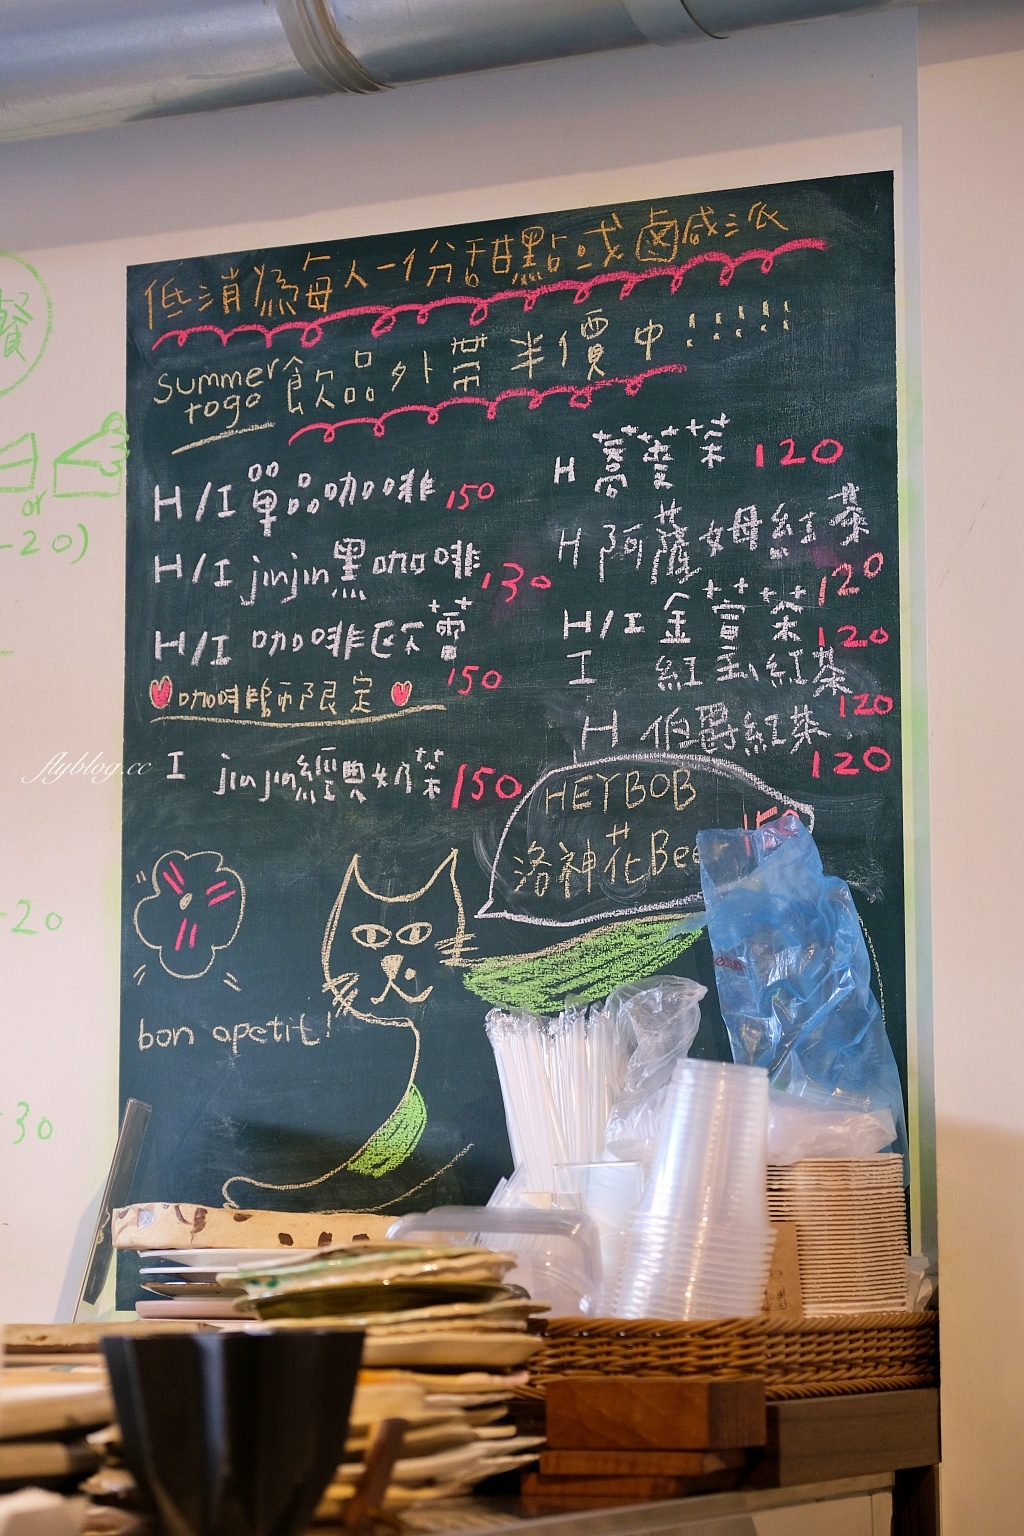 低消為每人一份甜點或鹵咸派
summer togo 飲品外帶半價中!!!!!
H/I 單品咖啡 150
H/I jinjin黑咖啡 130
H/I 咖啡欧蕾 150
咖啡師限定
I jinjin經典奶茶 150
H 蕎麥茶 120
H 阿薩姆紅茶 120
H/I 金萱茶 120
I 紅玉紅茶 120
H 伯爵紅茶 120
HEYBOB
洛神花Bee
150
bon apetit!
餐
or
-20)
-20
-30
flyblog.cc